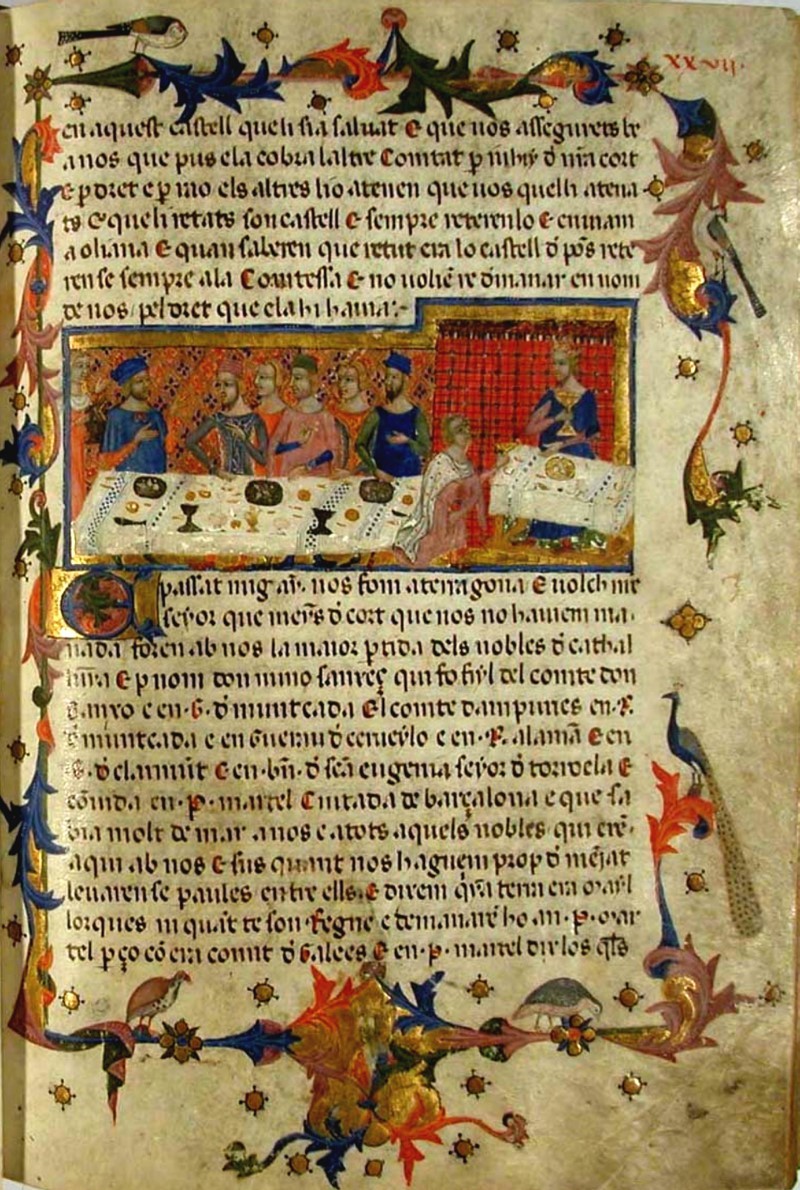 xxvii.
en aquest castell queli sia saluat E que uos assegurets be
a nos que pus ela cobra laltre Comtat p̱ iuhy d nr̄a cort
E p dret e p̱ mo els altres ho atenen que uos quelli atena
ts E queli retats son castell E sempre reteren lo E eninam
a oliana E quan saberen que retut era lo castell d pōs rete
ren se sempre ala Comtessa E no uolgē re dmanar en nom
de nos pel dret que ela hi hauia:-
E passat mig ay. nos fom aterragona E uolch nr̄e
seyor que mey̅s d cort que nos no hauiem ma
nada foren ab nos la maior ptida dels nobles d cathal
unya E p nom don nuno sanxeç qui fo fiyl del comte don
Sanxo e en .G. d muntcada El comte dampuries en .P.
d muntcada e en Guerau d ceruerylo e en .R. alamā E en
.G. d claramūt E en .bn̄. d scā eugenia seyor d torroela E
cōuida en .p. martel Ciutada de barçalona e que sa
bia molt de mar a nos e a tots aquels nobles qui erē
aqui ab nos E sus quant nos haguem prop d mēiat
leuaren se paules entre ells. E direm q̄na terra era mayl
lorques ni quāt te son regne e demanarē ho an .p. mar
tel p ço cō era comit d Galees E en .p. martel dix los q̄ls